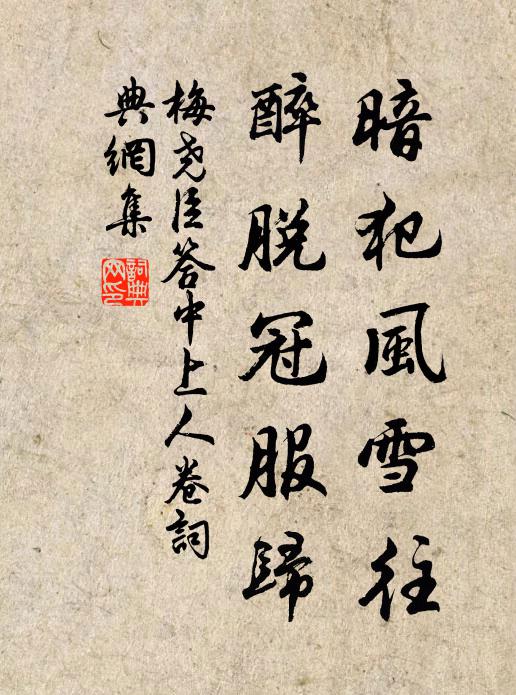 暗犯風雪往
醉脫冠服歸
梅尧臣答中上人卷詞
典網集
詞典
网印